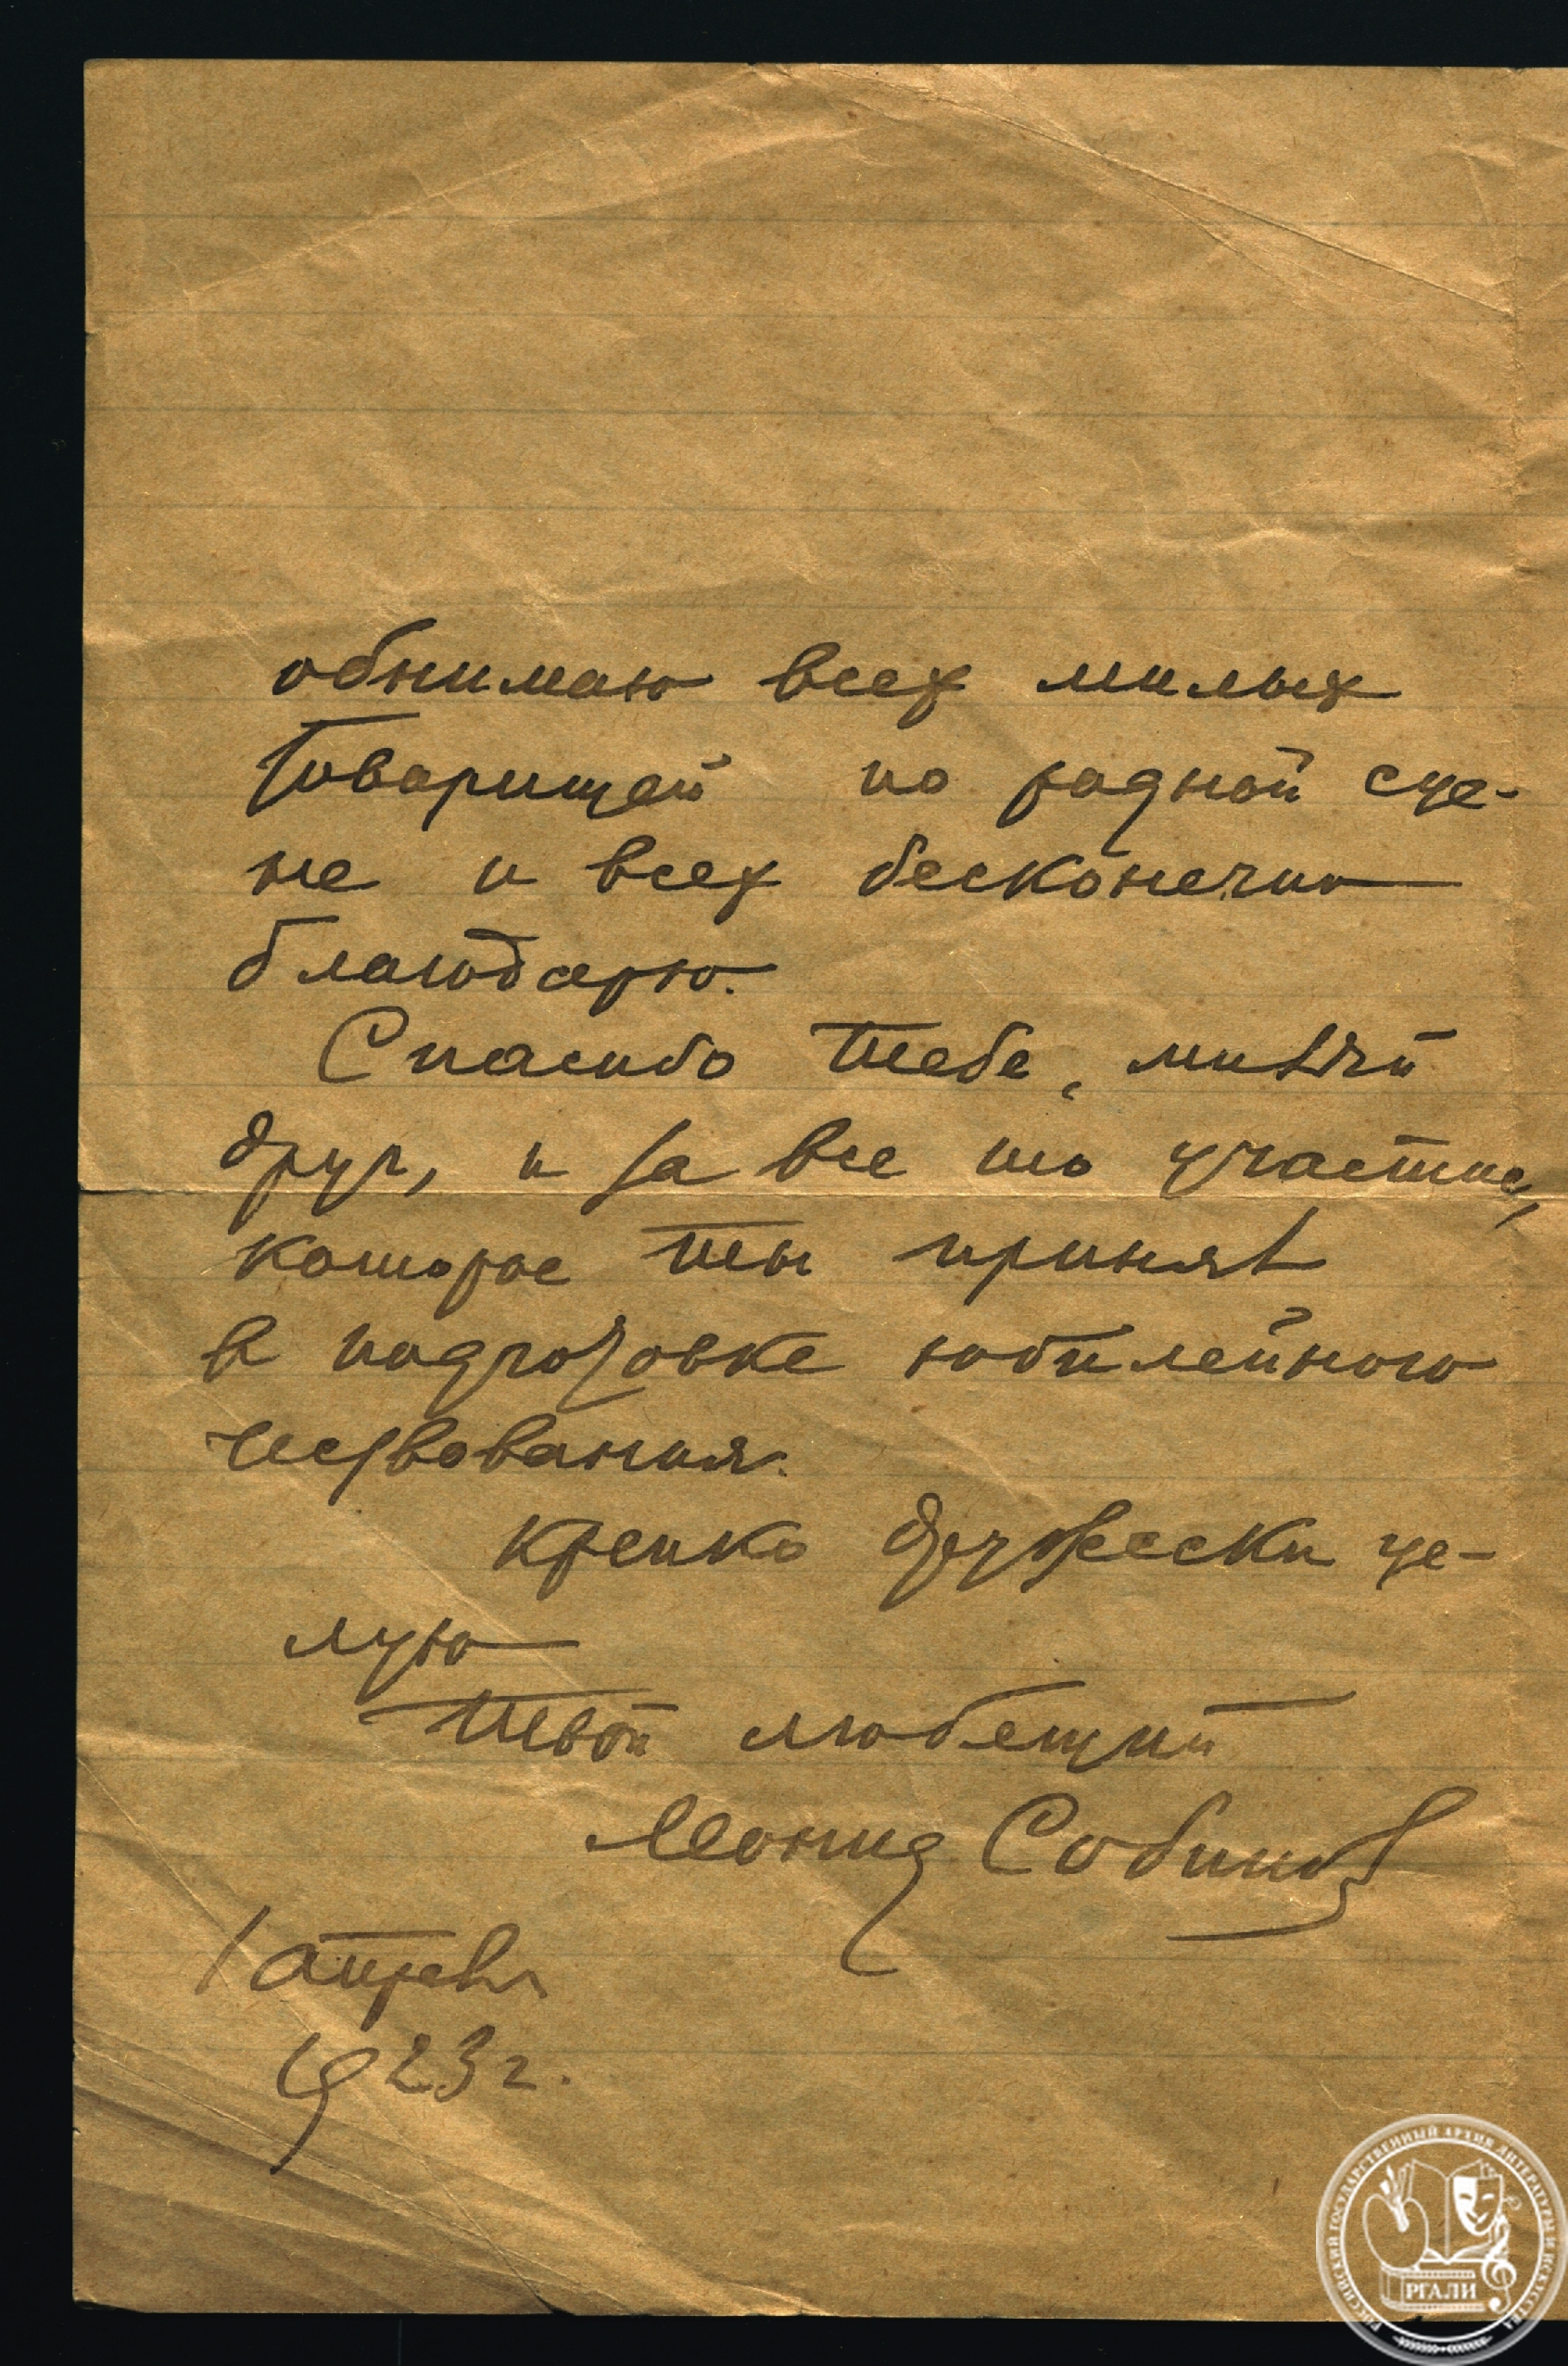 обнимаю всех милых
товарищей по родной сце-
не и всех бесконечно
благодарю.
Спасибо тебе, милый
друг, и за все то участие,
которое ты принял
в подготовке юбилейного
чествования.
Крепко дружески це-
лую
Твой любящий
Леонид Собинов
1 апреля
1923 г.
РОССИЙСКИЙ ГОСУДАРСТВЕННЫЙ АРХИВ ЛИТЕРАТУРЫ И ИСКУССТВА
РГАЛИ